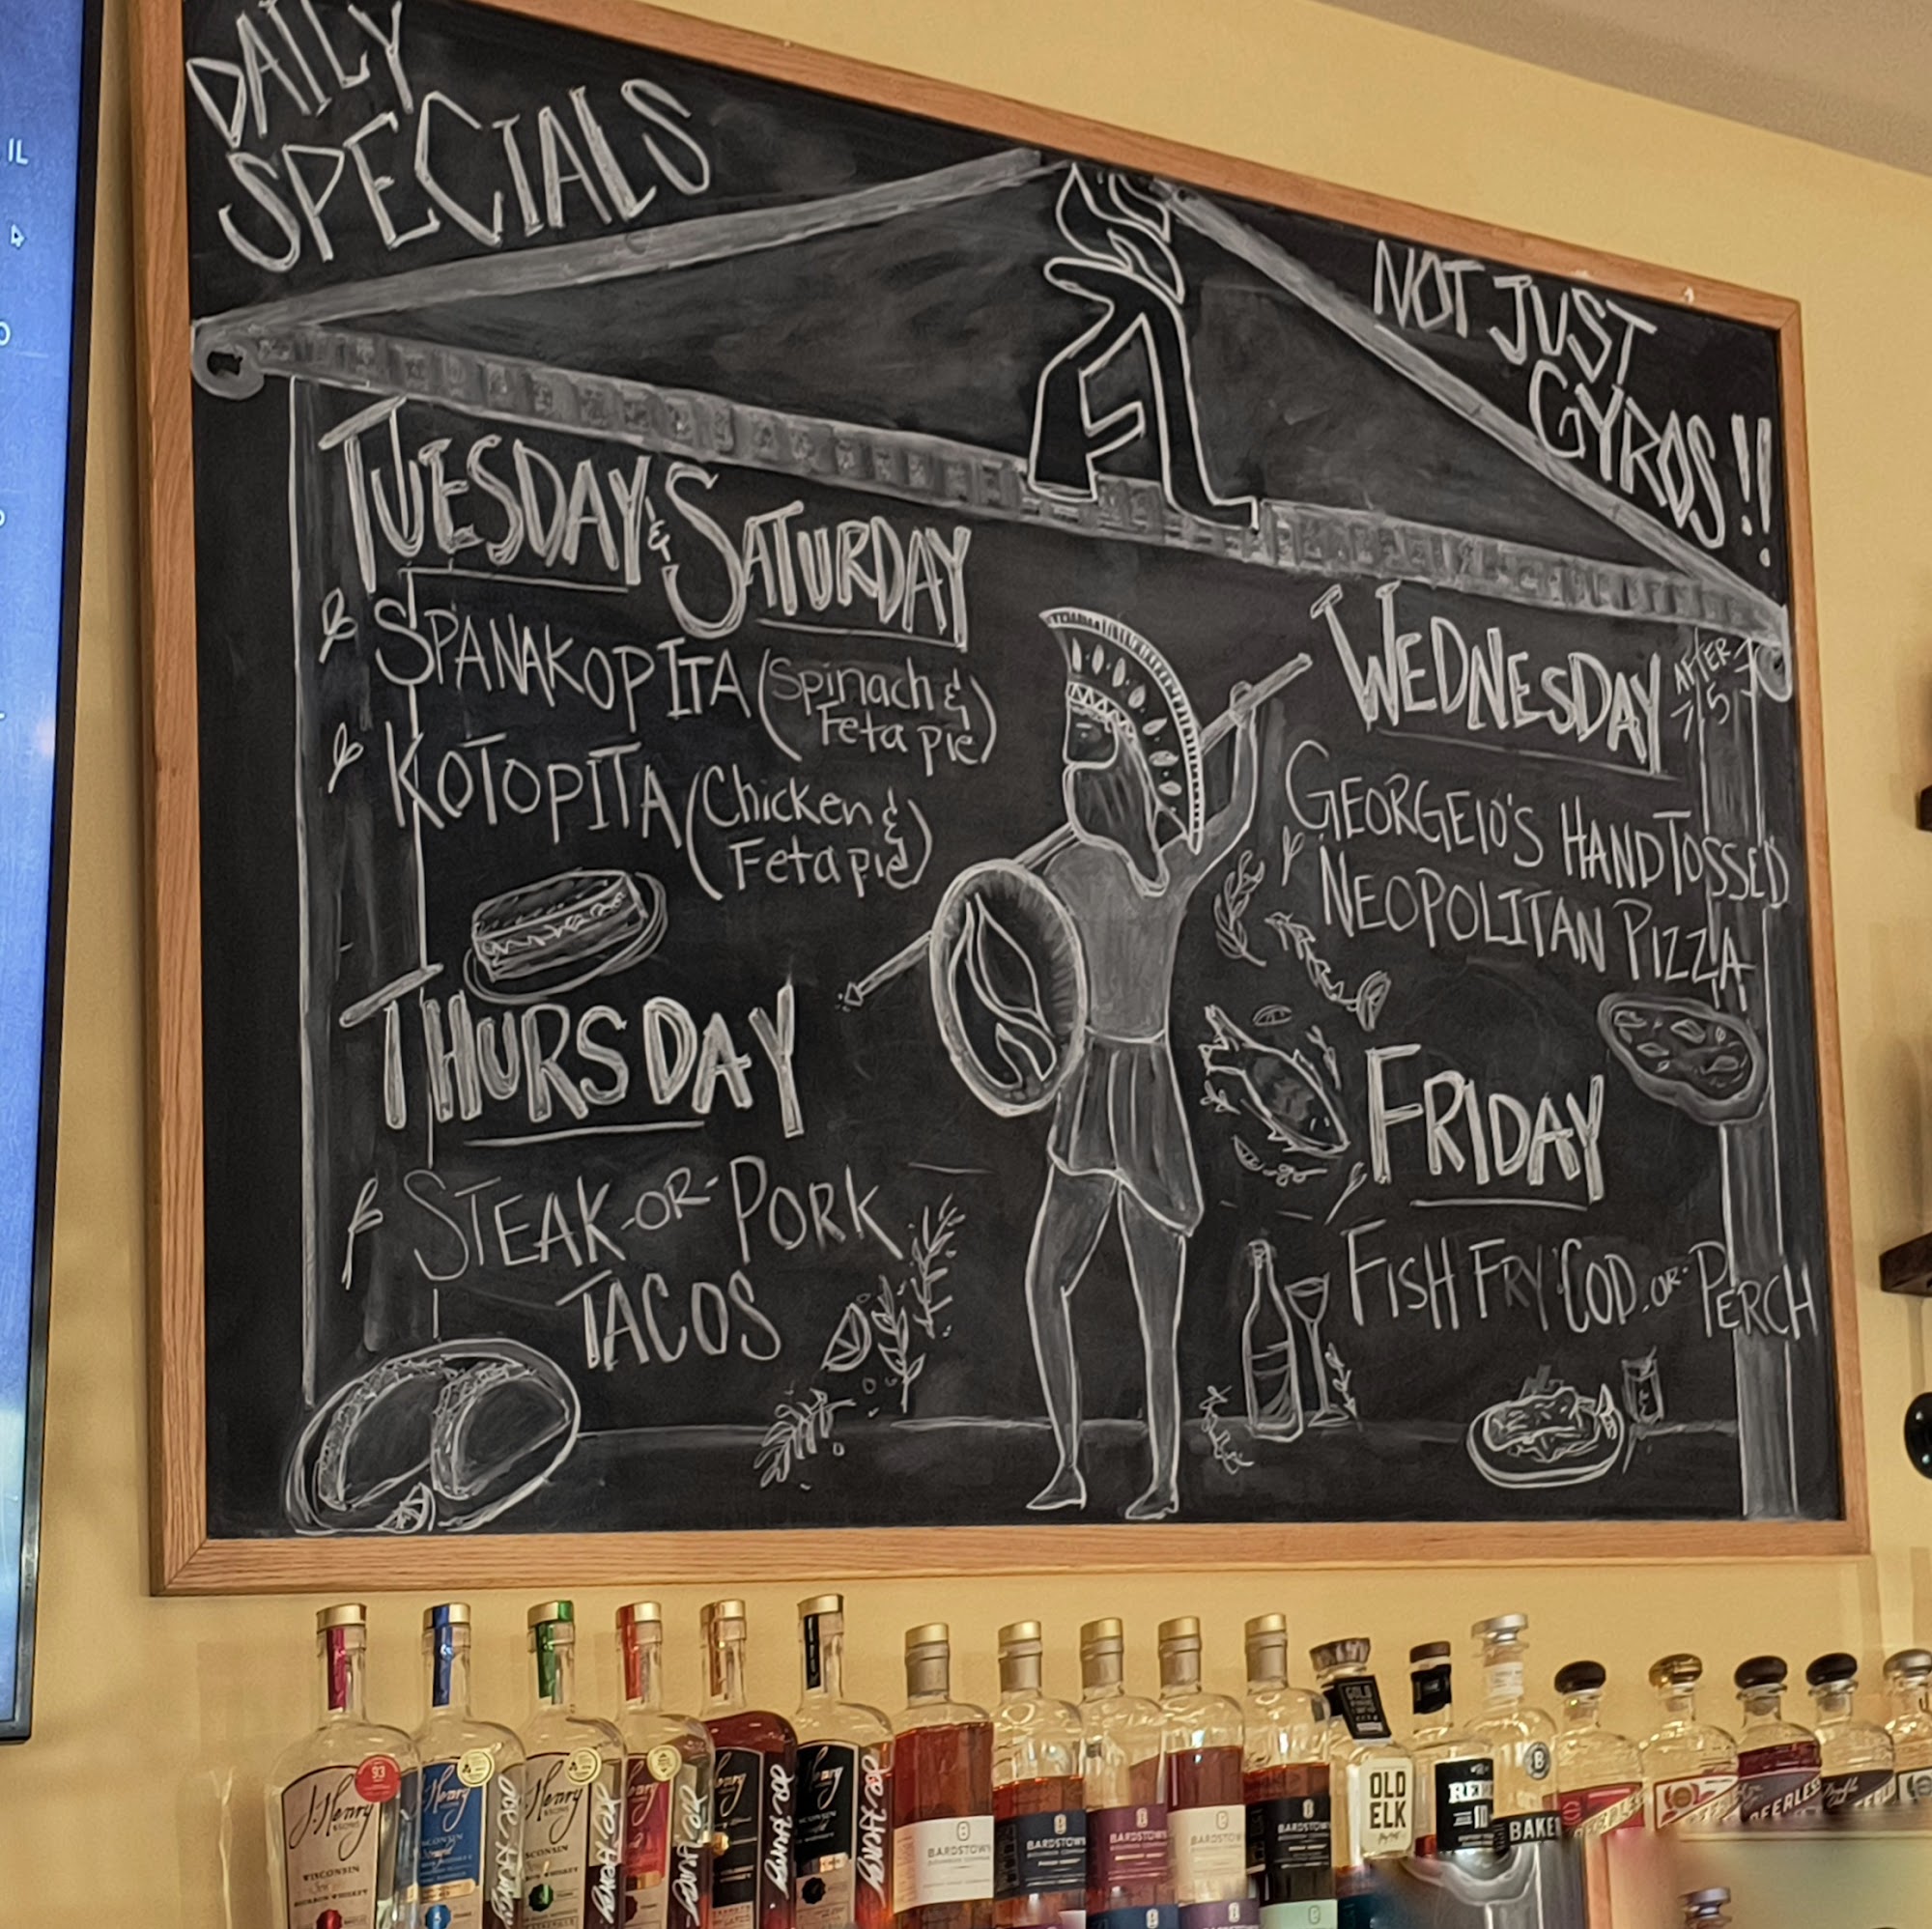 DAILY
SPECIALS
NOT JUST
GYROS!!
TUESDAY & SATURDAY
SPANAKOPITA (Spinach &
Feta pie)
KOTOPITA (Chicken &
Feta pie)
THURSDAY
STEAK -OR- PORK
TACOS
WEDNESDAY AFTER
5
GEORGEIO'S HAND TOSSED
NEOPOLITAN PIZZA
FRIDAY
FISH FRY COD -OR- PERCH
IL
J. Henry
& SONS
WISCONSIN
BOURBON WHISKEY
93
BARDSTOWN
BARDSTOWN
BARDSTOWN
BARDSTOWN
BARDSTOWN
OLD
ELK
BAKER
PEERLESS